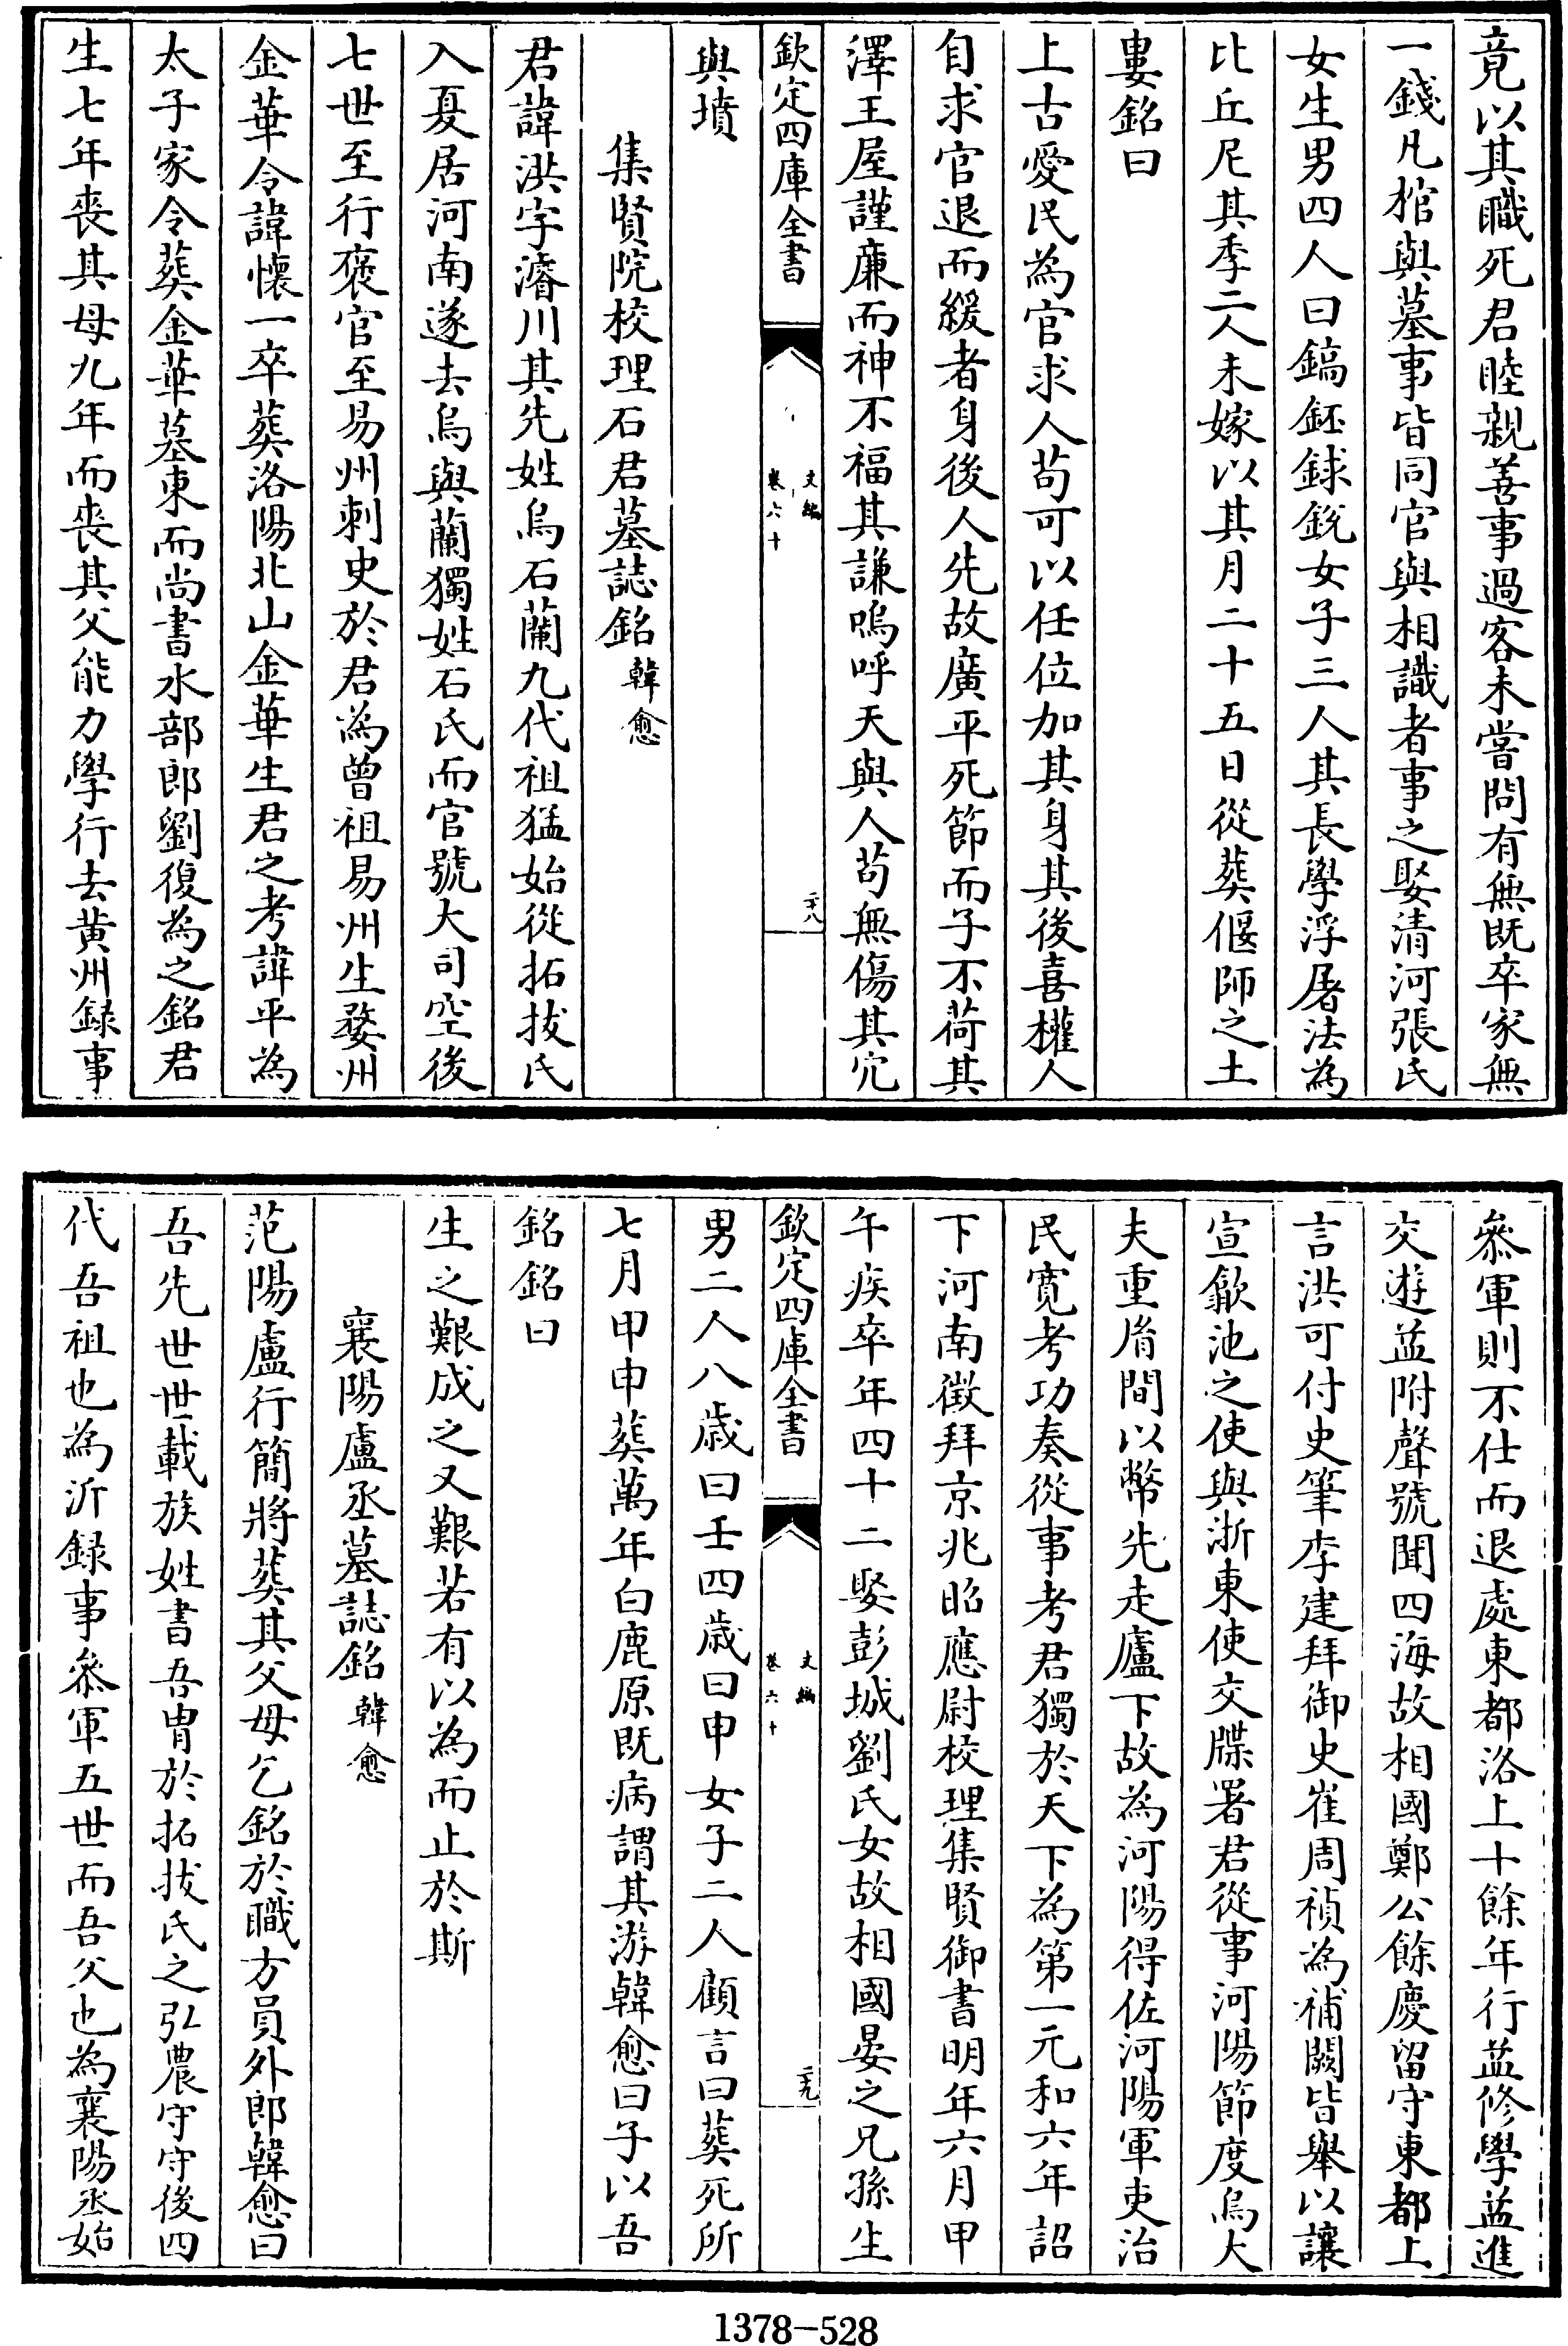 竟以其職死君睦親善事過客未嘗問有無既卒家無
一錢凡棺與墓事皆同官與相識者事之娶清河張氏
女生男四人曰鎬鉟銶銳女子三人其長學浮屠法為
比丘尼其季二人未嫁以其月二十五日從葬偃師之土
婁銘曰
上古愛民為官求人苟可以任位加其身其後喜權人
自求官退而緩者身後人先故廣平死節而子不荷其
澤王屋謹廉而神不福其謙嗚呼天與人苟無傷其穴
欽定四庫全書
文編
卷六十
二十八
與墳
集賢院校理石君墓誌銘韓愈
君諱洪字濬川其先姓烏石蘭九代祖猛始從拓拔氏
入夏居河南遂去烏與蘭獨姓石氏而官號大司空後
七世至行襃官至易州刺史於君為曾祖易州生婺州
金華令諱懷一卒葬洛陽北山金華生君之考諱平為
太子家令葬金華墓東而尚書水部郎劉復為之銘君
生七年喪其母九年而喪其父能力學行去黃州録事
叅軍則不仕而退處東都洛上十餘年行益修學益進
交遊益附聲號聞四海故相國鄭公餘慶留守東都上
言洪可付史筆李建拜御史崔周禎為補闕皆舉以讓
宣歙池之使與浙東使交牒署君從事河陽節度烏大
夫重胤間以幣先走廬下故為河陽得佐河陽軍吏治
民寛考功奏從事考君獨於天下為第一元和六年詔
下河南徵拜京兆昭應尉校理集賢御書明年六月甲
午疾卒年四十二娶彭城劉氏女故相國晏之兄孫生
欽定四庫全書
文編
卷六十
二十九
男二人八歲曰壬四歲曰申女子二人顧言曰葬死所
七月甲申葬萬年白鹿原既病謂其游韓愈曰子以吾
銘銘曰
生之艱成之又艱若有以為而止於斯
襄陽盧丞墓誌銘韓愈
范陽盧行簡將葬其父母乞銘於職方員外郎韓愈曰
吾先世世載族姓書吾胄於拓拔氏之弘農守守後四
代吾祖也為沂録事叅軍五世而吾父也為襄陽丞始
1378-528